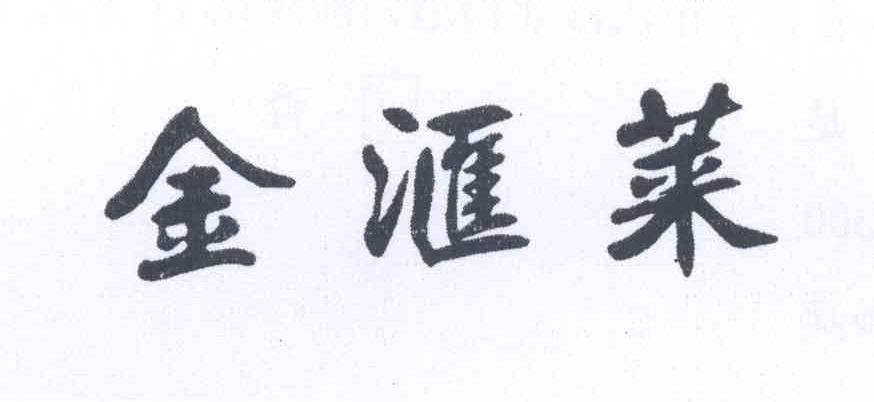 金滙莱